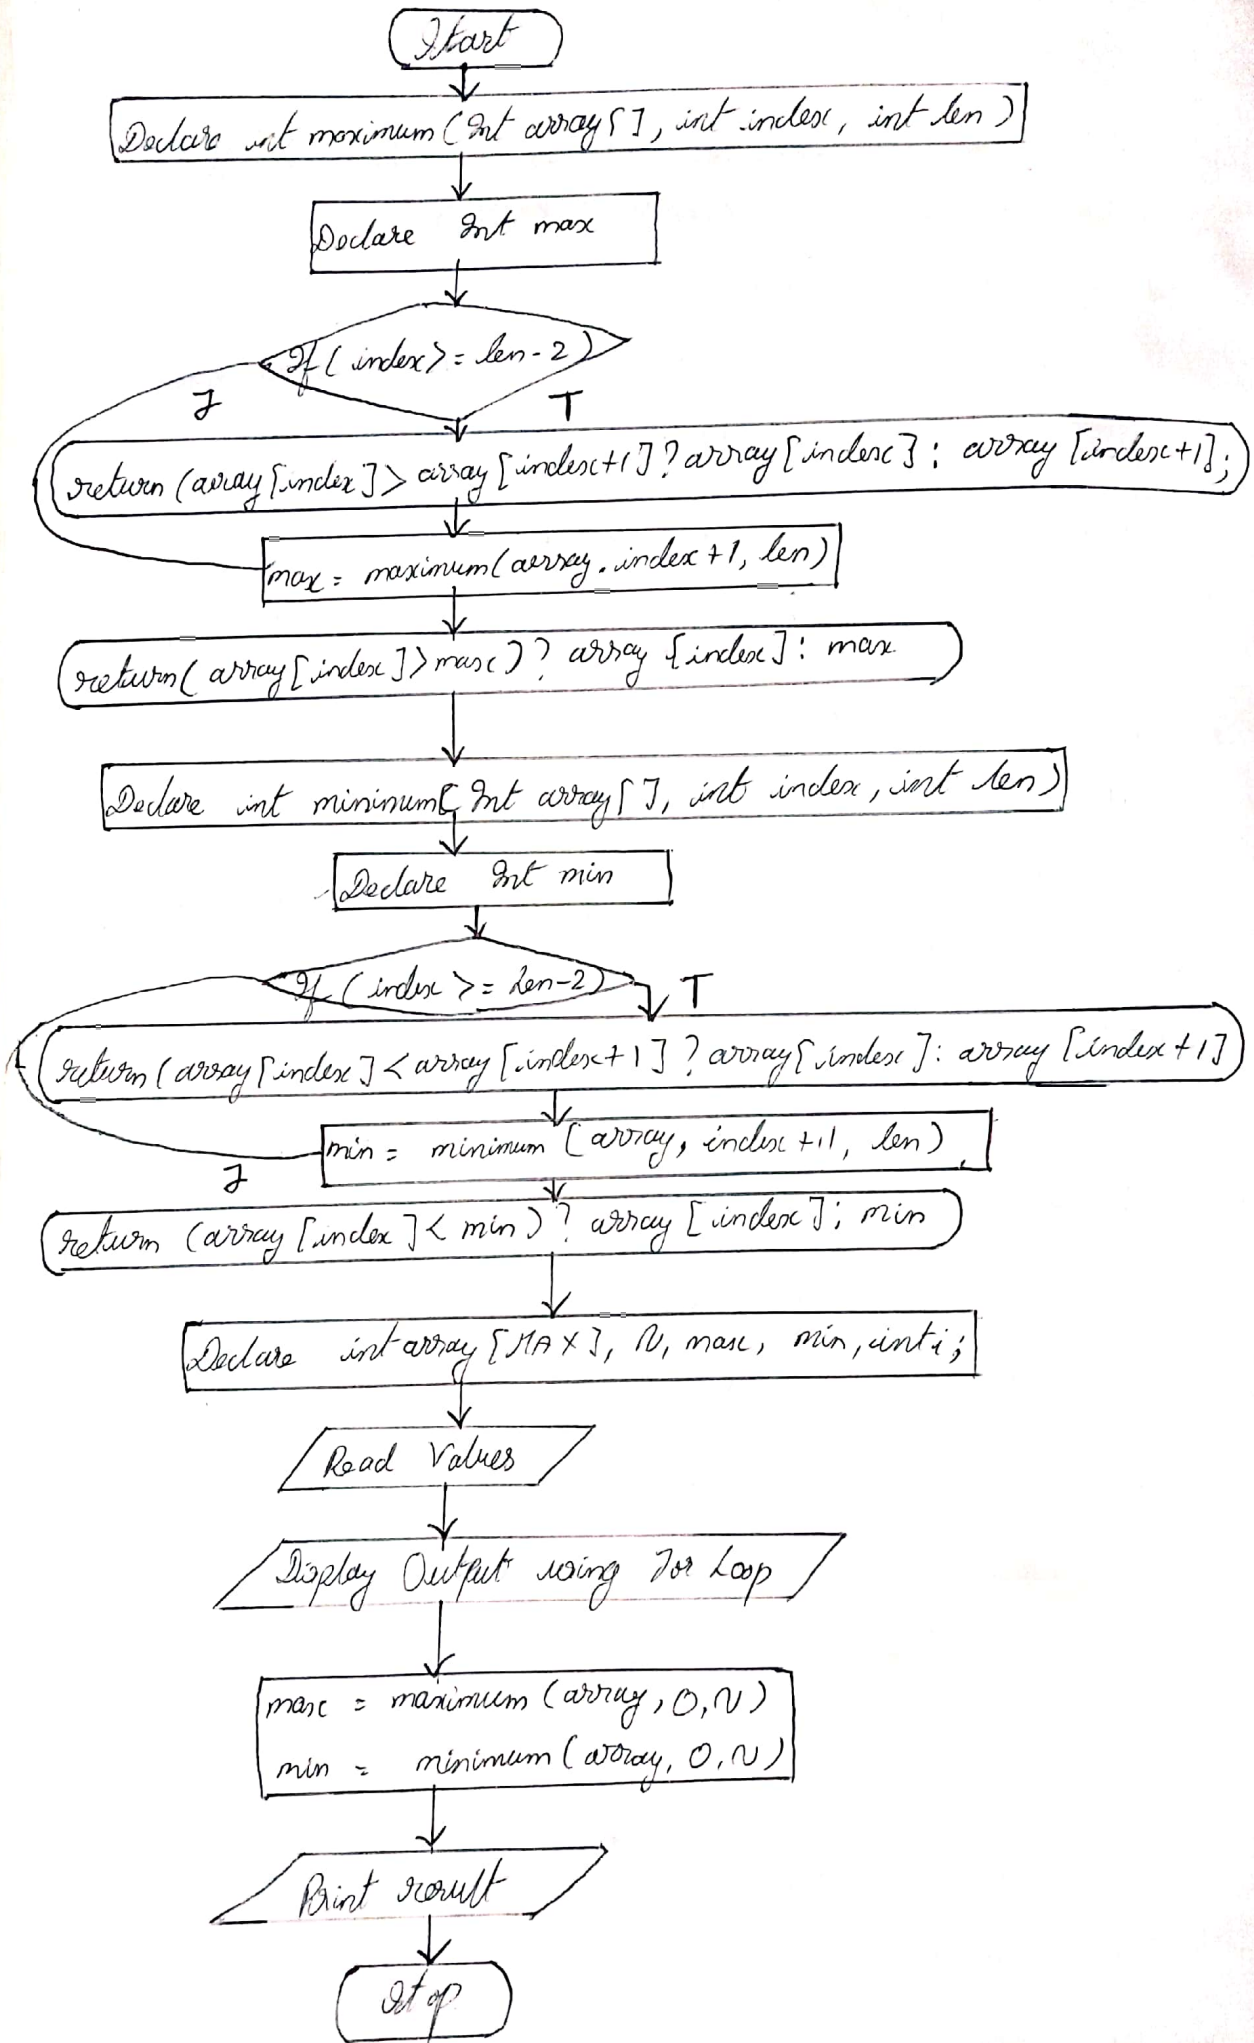 Start
Declare int maximum(Int array[], int index, int len)
Declare Int max
If(index>=len-2)
F T
return(array[index]>array[index+1]?array[index]: array[index+1];
max = maximum(array.index+1, len)
return(array[index]>max)? array[index]: max
Declare int mininum( Int array[], int index, int len)
Declare Int min
If (index >= Len-2)
T
return(array[index]<array[index+1] ? array[index]: array[index+1]
min = minimum (array, index+1, len)
F
return (array[index]< min)? array[index]; min
Declare int array [MAX], N, max, min, int i;
Read Values
Display Output using For Loop
max = maximum(array, 0, N)
min = minimum(array, 0, N)
Print result
Stop